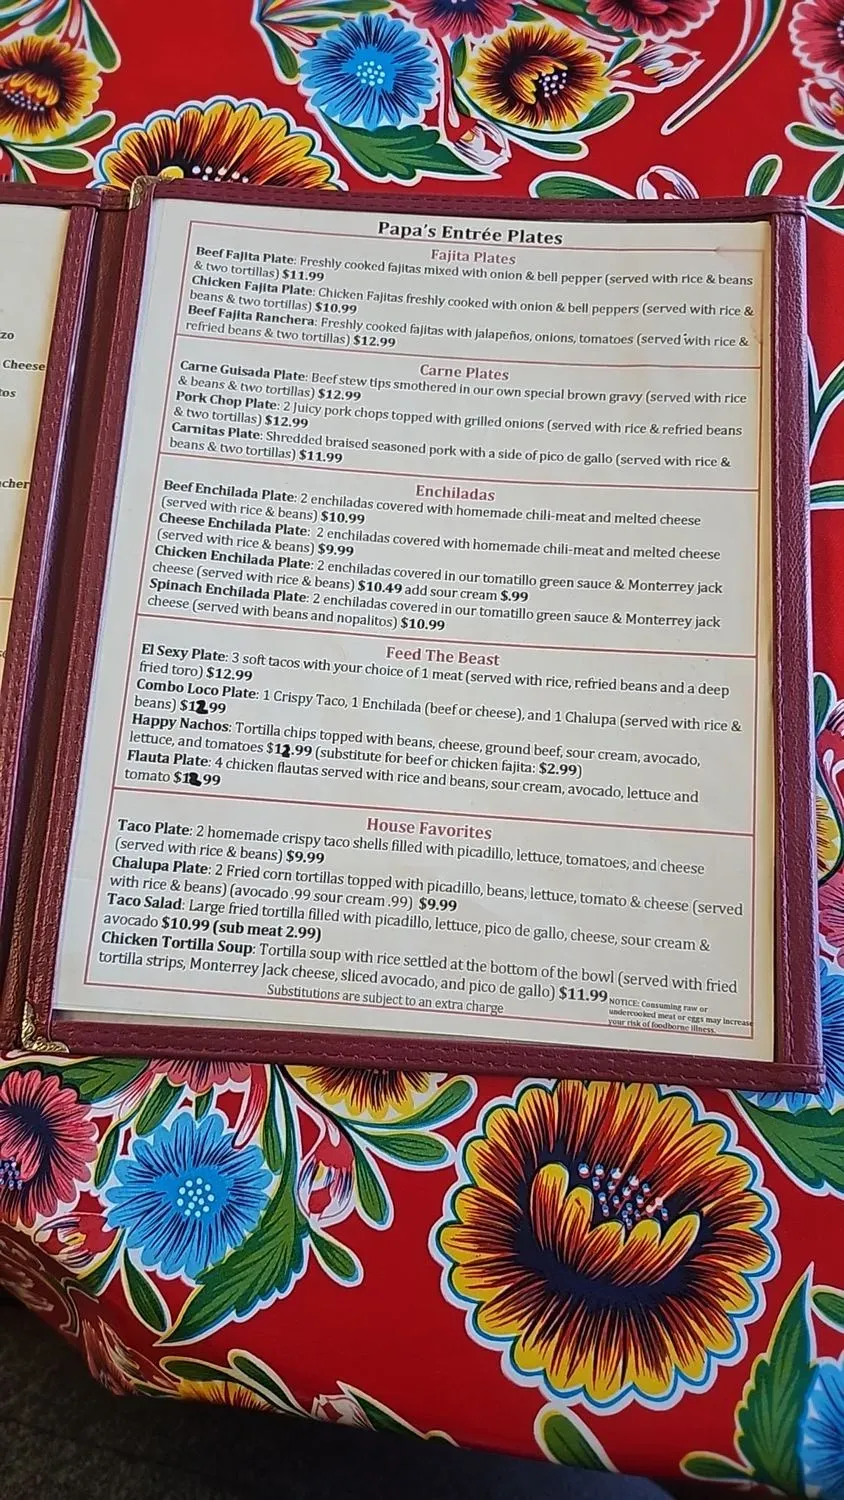 zo
Cheese
tos
cher
Papa's Entrée Plates
Fajita Plates
Beef Fajita Plate: Freshly cooked fajitas mixed with onion & bell pepper (served with rice & beans
& two tortillas) $11.99
Chicken Fajita Plate: Chicken Fajitas freshly cooked with onion & bell peppers (served with rice &
beans & two tortillas) $10.99
Beef Fajita Ranchera: Freshly cooked fajitas with jalapeños, onions, tomatoes (served with rice &
refried beans & two tortillas) $12.99
Carne Plates
Carne Guisada Plate: Beef stew tips smothered in our own special brown gravy (served with rice
& beans & two tortillas) $12.99
Pork Chop Plate: 2 Juicy pork chops topped with grilled onions (served with rice & refried beans
& two tortillas) $12.99
Carnitas Plate: Shredded braised seasoned pork with a side of pico de gallo (served with rice &
beans & two tortillas) $11.99
Enchiladas
Beef Enchilada Plate: 2 enchiladas covered with homemade chili-meat and melted cheese
(served with rice & beans) $10.99
Cheese Enchilada Plate: 2 enchiladas covered with homemade chili-meat and melted cheese
(served with rice & beans) $9.99
Chicken Enchilada Plate: 2 enchiladas covered in our tomatillo green sauce & Monterrey jack
cheese (served with rice & beans) $10.49 add sour cream $.99
Spinach Enchilada Plate: 2 enchiladas covered in our tomatillo green sauce & Monterrey jack
cheese (served with beans and nopalitos) $10.99
Feed The Beast
El Sexy Plate: 3 soft tacos with your choice of 1 meat (served with rice, refried beans and a deep
fried toro) $12.99
Combo Loco Plate: 1 Crispy Taco, 1 Enchilada (beef or cheese), and 1 Chalupa (served with rice &
beans) $12.99
Happy Nachos: Tortilla chips topped with beans, cheese, ground beef, sour cream, avocado,
lettuce, and tomatoes $12.99 (substitute for beef or chicken fajita: $2.99)
Flauta Plate: 4 chicken flautas served with rice and beans, sour cream, avocado, lettuce and
tomato $12.99
House Favorites
Taco Plate: 2 homemade crispy taco shells filled with picadillo, lettuce, tomatoes, and cheese
(served with rice & beans) $9.99
Chalupa Plate: 2 Fried corn tortillas topped with picadillo, beans, lettuce, tomato & cheese (served
with rice & beans) (avocado .99 sour cream .99) $9.99
Taco Salad: Large fried tortilla filled with picadillo, lettuce, pico de gallo, cheese, sour cream &
avocado $10.99 (sub meat 2.99)
Chicken Tortilla Soup: Tortilla soup with rice settled at the bottom of the bowl (served with fried
tortilla strips, Monterrey Jack cheese, sliced avocado, and pico de gallo) $11.99
Substitutions are subject to an extra charge
NOTICE: Consuming raw or
undercooked meat or eggs may increase
your risk of foodborne illness.